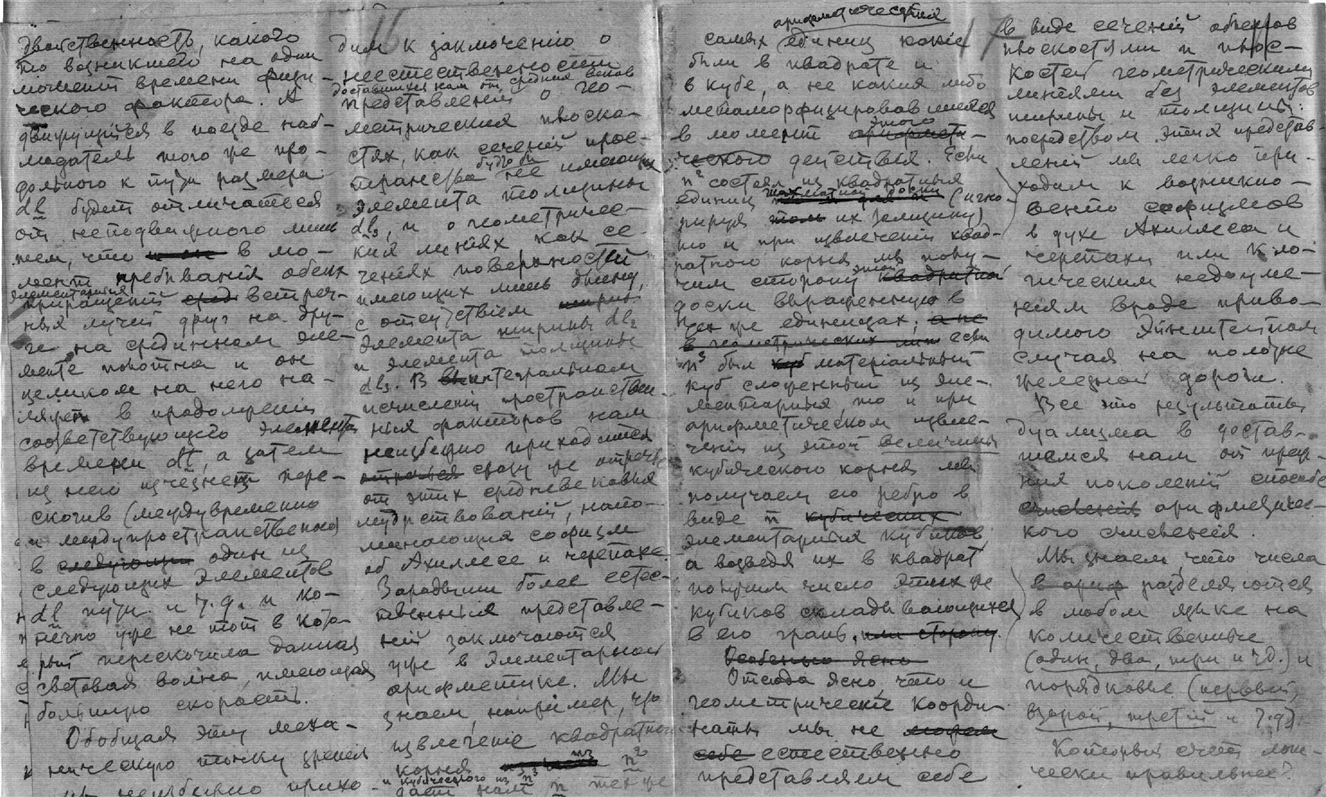 двойственность, какого
то возникшего на один
момент времени физи-
ческого фактора. А
движущийся в поезде наб-
людатель того же про-
дольного к пути размера
dl будет отличаться
от неподвижного лишь
тем, что в мо-
мент пребывания обеих
элементарных
приращений встреч-
ных лучей друг на дру-
ге на срединном эле-
менте полотна и он
целиком на него на-
ляжет в продолжении
соответствующего элемента
времени dt, а затем
из него исчезнет пере-
скочив (междувременно
и междупространственно)
в следующий один из
следующих элементов
dl пути и т.д. и ко-
нечно уже не тот в кото-
рый перескочила данная
световая волна, имеющая
большую скорость.
Обобщая эту меха-
ническую точку зрения
мы неизбежно прихо-
16
дим к заключению о
неестественности
доставшихся нам от средних веков
представлений о гео-
метрических плоско-
стях, как сечений прос-
транства будто бы не имеющих
элемента толщины
dl₃, и о геометричес-
ких линиях как се-
чениях поверхностей
имеющих лишь длину,
с отсутствием
элемента ширины dl₂
и элемента толщины
dl₃. В интегральном
исчислении пространствен-
ных факторов нам
неизбежно приходится
сразу же отречься
от этих средневековых
мудрствований, напо-
минающих софизм
об Ахиллесе и черепахе
Зародыши более естес-
твенных представле-
ний заключаются
уже в элементарной
арифметике. Мы
знаем, например, что
извлечение квадратного
корня из n²
и кубического из n³
дает нам n тех же
арифметических
самых единиц какие
были в квадрате и
в кубе, а не каких либо
метаморфизировавшихся
в момент этого арифмети-
ческого действия. Если
n² состоял из квадратных
единиц (игно-
рируя их толщину)
то и при извлечении квад-
ратного корня мы полу-
чим сторону этой квадратной
доски выраженную в
тех же единицах; а не
в геометрических если
n³ был куб материальный
куб сложенный из эле-
ментарных то и при
арифметическом извле-
чении из этой величины
кубического корня мы
получаем его ребро в
виде n кубических
элементарных кубиков
а возведя их в квадрат
получим число этих же
кубиков складывающихся
в его грань, или сторону.
Особенно ясно
Отсюда ясно что и
геометрические коорди-
наты мы не можем
себе естественно
представляем себе
17
в виде сечений объемов
плоскостями и плос-
костей геометрическими
линиями без элементов
ширины и толщины:
посредством этих представ-
лений мы легко при-
ходим к возникно-
вению софизмов
в духе Ахиллеса и
черепахи или к ло-
гическим недоуме-
ниям вроде приво-
димого Эйнштейном
случая на полотне
железной дороги.
Все это результаты
дуализма в достав-
шемся нам от преж-
них поколений способе
счисления арифметичес-
кого счисления.
Мы знаем, что числа
в ариф разделяются
в любом языке на
количественные
(один, два, три и т.д.) и
порядковые (первый,
второй, третий и т.д).
Который счет логи-
чески правильнее?